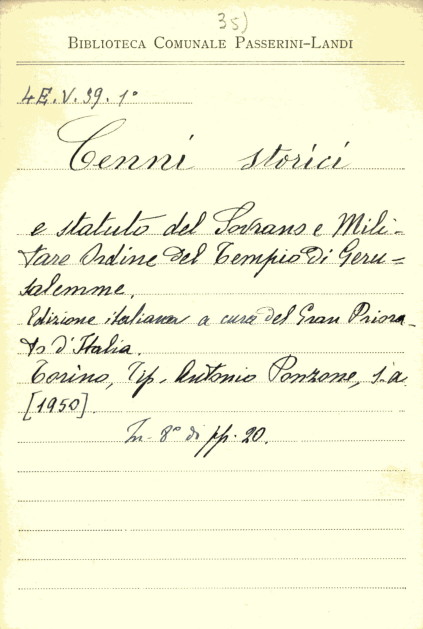 35)
BIBLIOTECA COMUNALE PASSERINI-LANDI
4E.V.39.1°
Cenni storici
e statuto del Sovrano e Mili-
tare Ordine del Tempio di Geru=
salemme.
Edizione italiana a cura del Gran Priora-
to d'Italia.
Torino, Tip. Antonio Ponzone, s.a.
[1950].
In-8° di pp. 20.